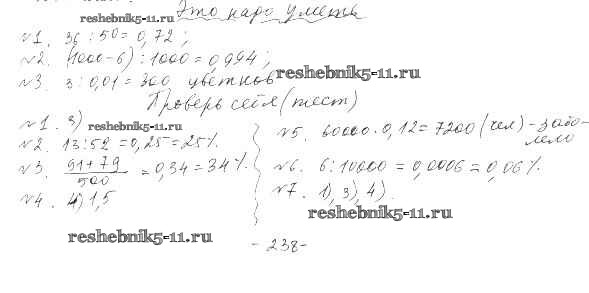 reshebnik5-11.ru
Это надо уметь
№1. 36 : 50 = 0,72 ;
№2. (1000-6) : 1000 = 0,994 ;
№3. 3 : 0,01 = 300 цветков
reshebnik5-11.ru
Проверь себя (тест)
№1. 3)
reshebnik5-11.ru
№2. 13 : 52 = 0,25 = 25%.
№3. 91+79 / 500 = 0,34 = 34%.
№4. 4) 1,5
reshebnik5-11.ru
№5. 60000 · 0,12 = 7200 (чел) - забо-
лело
№6. 6 : 10000 = 0,0006 = 0,06%.
№7. 1), 3), 4).
reshebnik5-11.ru
- 238 -